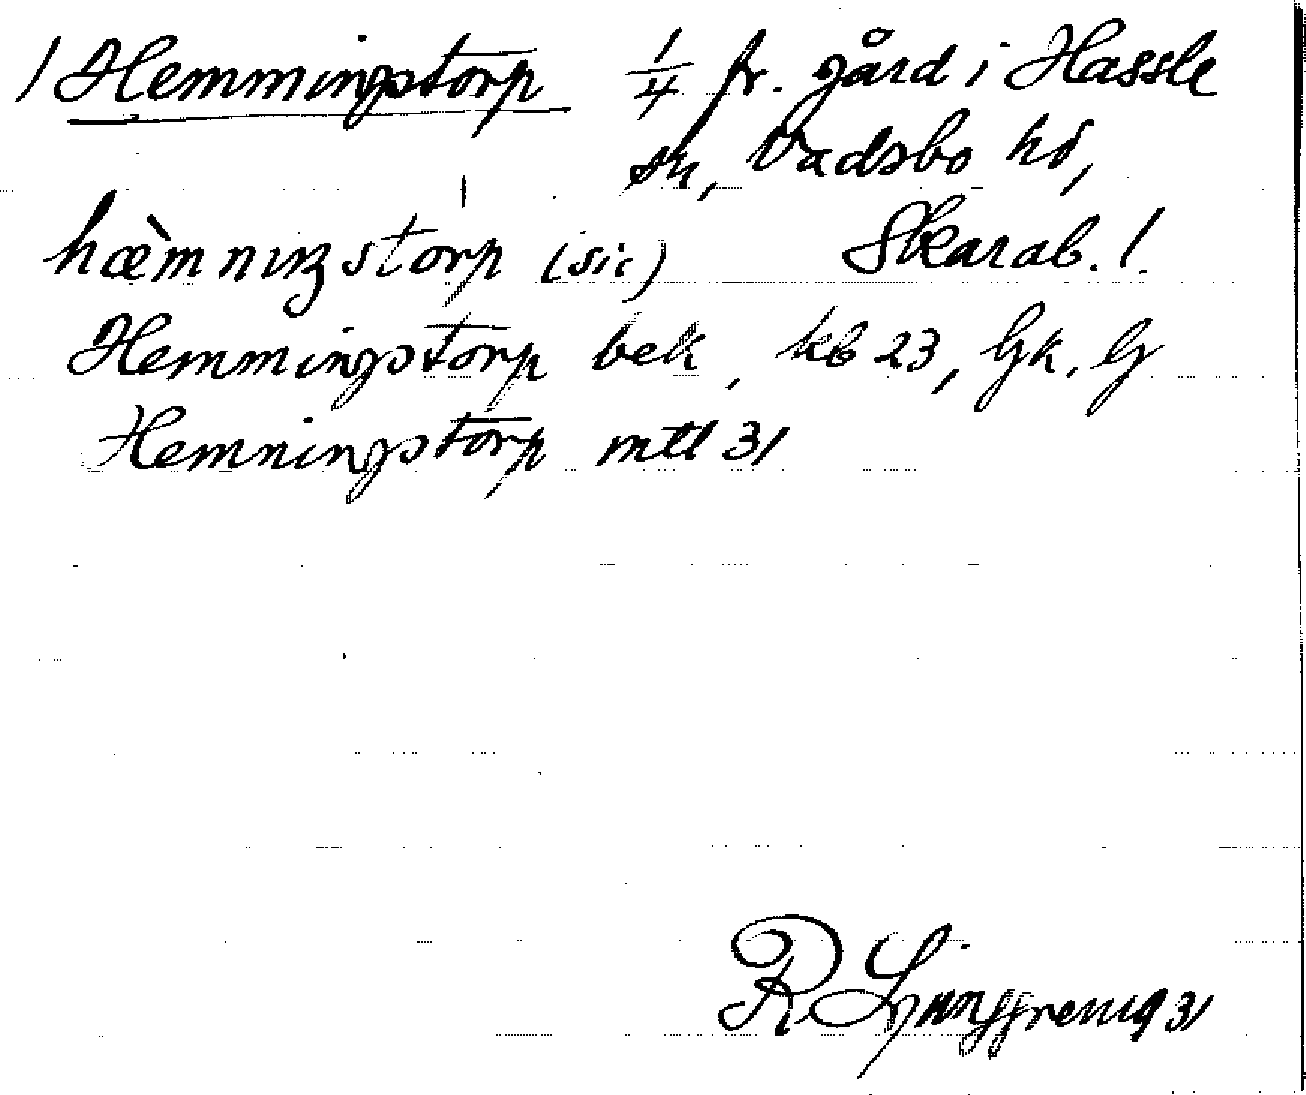 / Hemmingstorp 1/4 fr. gård i Hassle
sn, Vadsbo hd,
hæ̀mnıŋstorp (sic) Skarab. l.
Hemmingstorp bek, kb 23, Gk. G
Hemningstorp mtl 31
R Ljunggren 1931